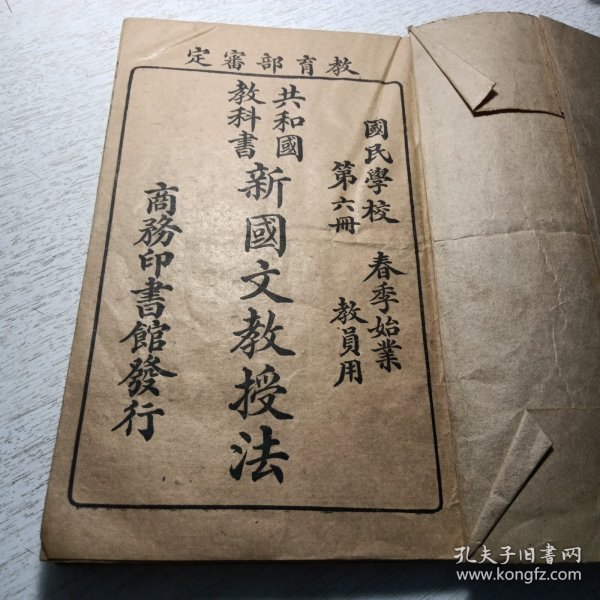 教育部審定
國民學校 春季始業
第六冊 教員用
共和國
教科書
新國文教授法
商務印書館發行
孔夫子旧书网
www.kongfz.com